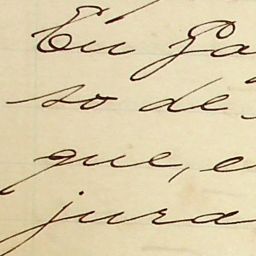 Eu Ga
so de
que, e
jura